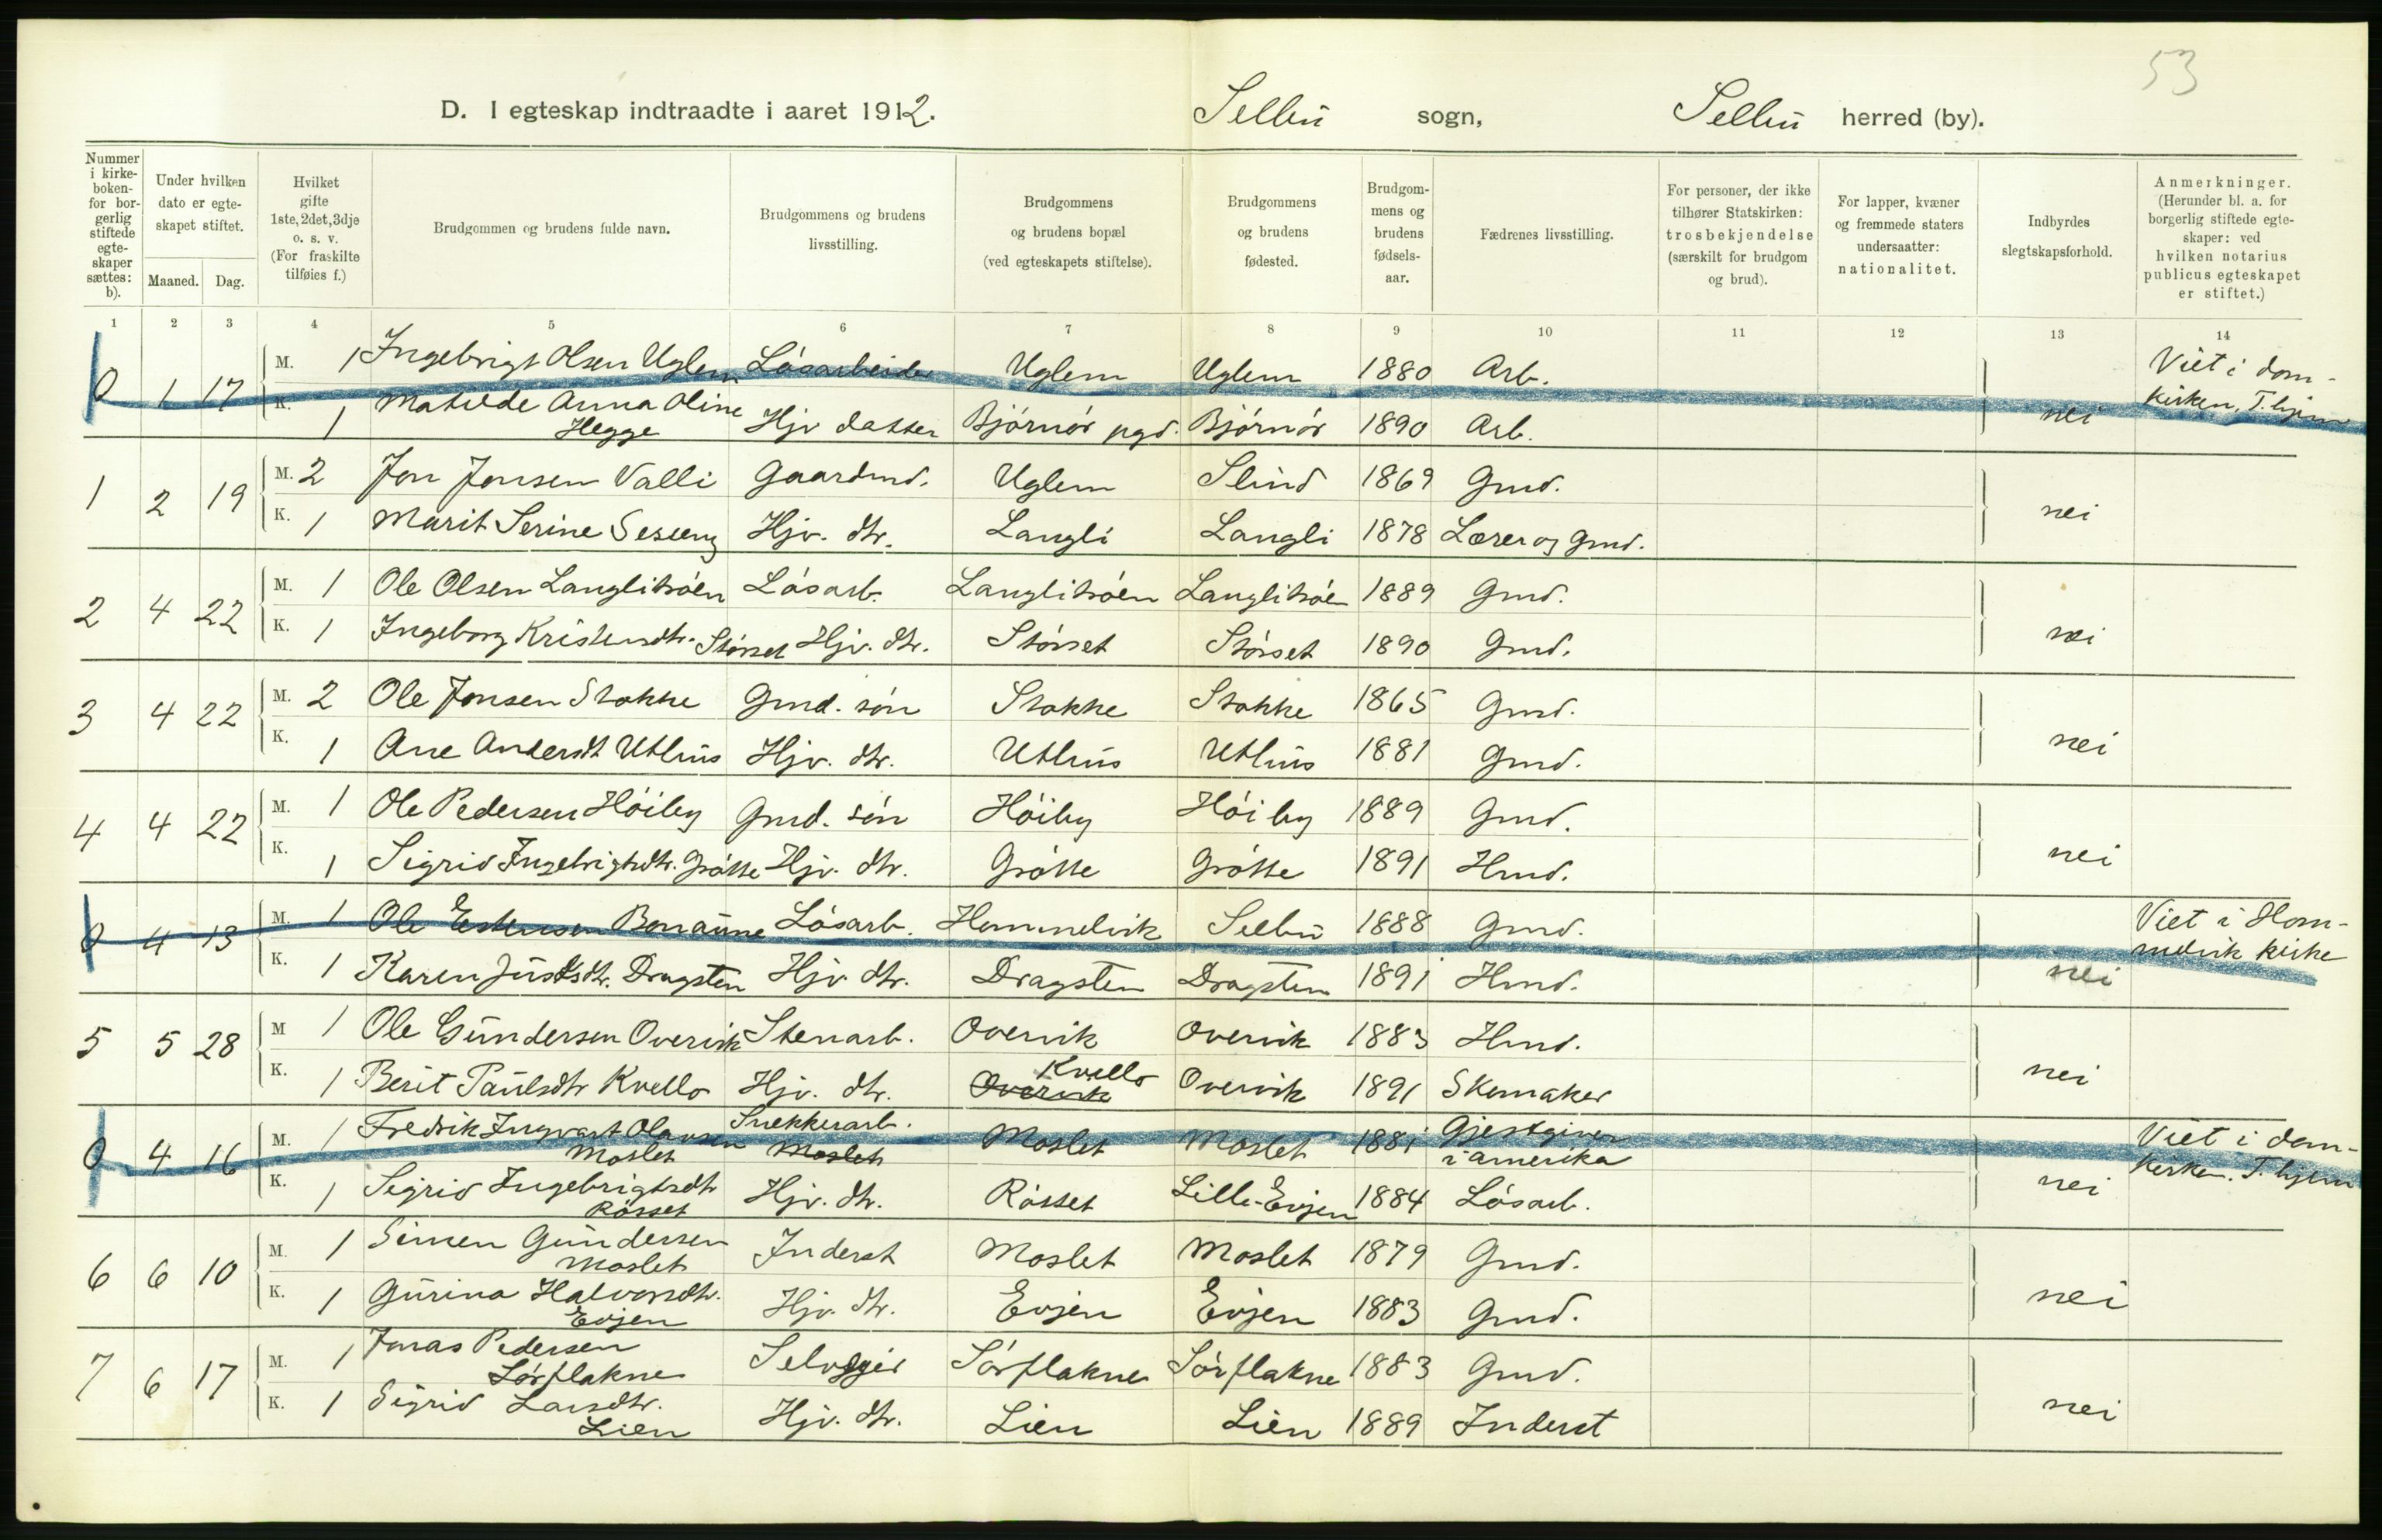 53
D. I egteskap indtraadte i aaret 1912. Selbu sogn, Selbu herred (by).
Nummer i kirke-boken- for bor-gerlig stiftede egte-skaper sættes: b). Under hvilken dato er egte-skapet stiftet. Maaned. Dag. Hvilket gifte 1ste, 2det, 3dje o. s. v. (For fraskilte tilføies f.) Brudgommen og brudens fulde navn. Brudgommens og brudens livsstilling. Brudgommens og brudens bopæl (ved egteskapets stiftelse). Brudgommens og brudens fødested. Brudgom-mens og brudens fødsels-aar. Fædrenes livsstilling. For personer, der ikke tilhører Statskirken: trosbekjendelse (særskilt for brudgom og brud). For lapper, kvæner og fremmede staters undersaatter: nationalitet. Indbyrdes slegtskapsforhold. Anmerkninger. (Herunder bl. a. for borgerlig stiftede egte-skaper: ved hvilken notarius publicus egteskapet er stiftet.)
1 2 3 4 5 6 7 8 9 10 11 12 13 14
0 1 17 M. 1 Ingebrigt Olsen Uglem Løsarbeider Uglem Uglem 1880 Arb. Viet i dom-kirken, T.hjem
K. 1 Matilde Anna Oline Hegge Hjv datter Bjørnør pgd. Bjørnør 1890 Arb. nei
1 2 19 M. 2 Jon Jonsen Valli Gaardmd. Uglem Slind 1869 Gmd.
K. 1 Marit Serine Sesseng Hjv. dtr. Langli Langli 1878 Lærer og Gmd. nei
2 4 22 M. 1 Ole Olsen Langlitrøen Løsarb. Langlitrøen Langlitrøen 1889 Gmd.
K. 1 Ingeborg Kristensdtr. Størset Hjv. dtr. Størset Størset 1890 Gmd. nei
3 4 22 M. 2 Ole Jonsen Stokke Gmd. søn Stokke Stokke 1865 Gmd.
K. 1 Ane Andersdt Uthus Hjv. dtr. Uthus Uthus 1881 Gmd. nei
4 4 22 M. 1 Ole Pedersen Høiby Gmd. søn Høiby Høiby 1889 Gmd.
K. 1 Sigrid Ingebrigtsdtr. Grøtte Hjv. dtr. Grøtte Grøtte 1891 Hmd. nei
0 4 13 M. 1 Ole Estensen Bonaune Løsarb. Hommelvik Selbu 1888 Gmd. Viet i Hom-melvik kirke
K. 1 Karen Justsdtr. Dragsten Hjv dtr. Dragsten Dragsten 1891 Hmd. nei
5 5 28 M 1 Ole Gundersen Overvik Stenarb. Overvik Overvik 1883 Hmd.
K. 1 Berit Paulsdtr Kvello Hjv. dtr. Overvik Kvello Overvik 1891 Skomaker nei
0 4 16 M. 1 Fredrik Ingvart Olausen Moslet Snekkerarb. Moslet Moslet Moslet 1881 Gjestgiver i Amerika Viet i dom-kirken. T.hjem
K. 1 Sigrid Ingebrigtsdtr Røsset Hjv. dtr. Røsset Lille-Evjen 1884 Løsarb. nei
6 6 10 M. 1 Simen Gundersen Moslet Inderst Moslet Moslet 1879 Gmd.
K. 1 Gurina Halvorsdtr. Evjen Hjv. dtr. Evjen Evjen 1883 Gmd. nei
7 6 17 M. 1 Jonas Pedersen Sørflakne Selveier Sørflakne Sørflakne 1883 Gmd.
K. 1 Sigrid Larsdtr. Lien Hjv. dtr. Lien Lien 1889 Inderst nei